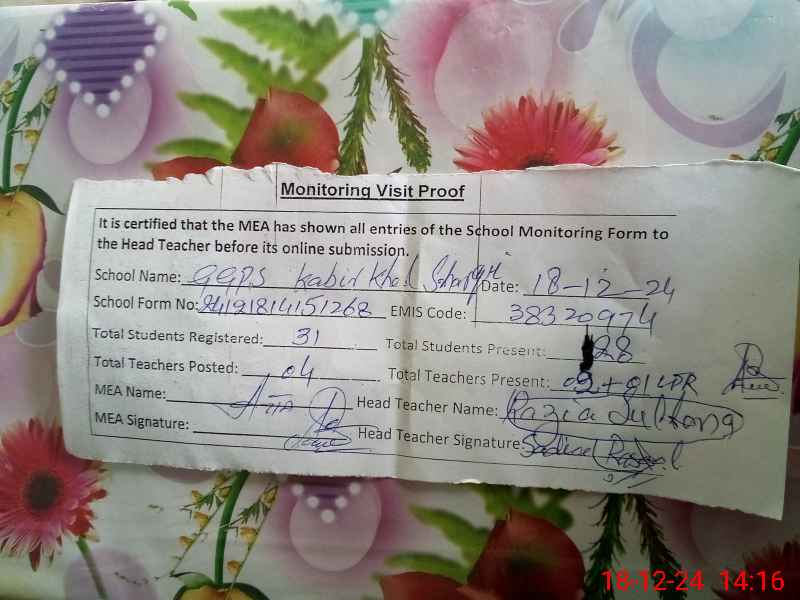 Monitoring Visit Proof
It is certified that the MEA has shown all entries of the School Monitoring Form to
the Head Teacher before its online submission.
School Name: GGPS Kabir Khel Date: 18-12-24
School Form No: 24121814151268 EMIS Code: 38320974
Total Students Registered: 31 Total Students Present: 28
Total Teachers Posted: 04 Total Teachers Present: 02+01 LPR
MEA Name: Atta Head Teacher Name: Razia Sultana
MEA Signature: Head Teacher Signature:
18-12-24 14:16